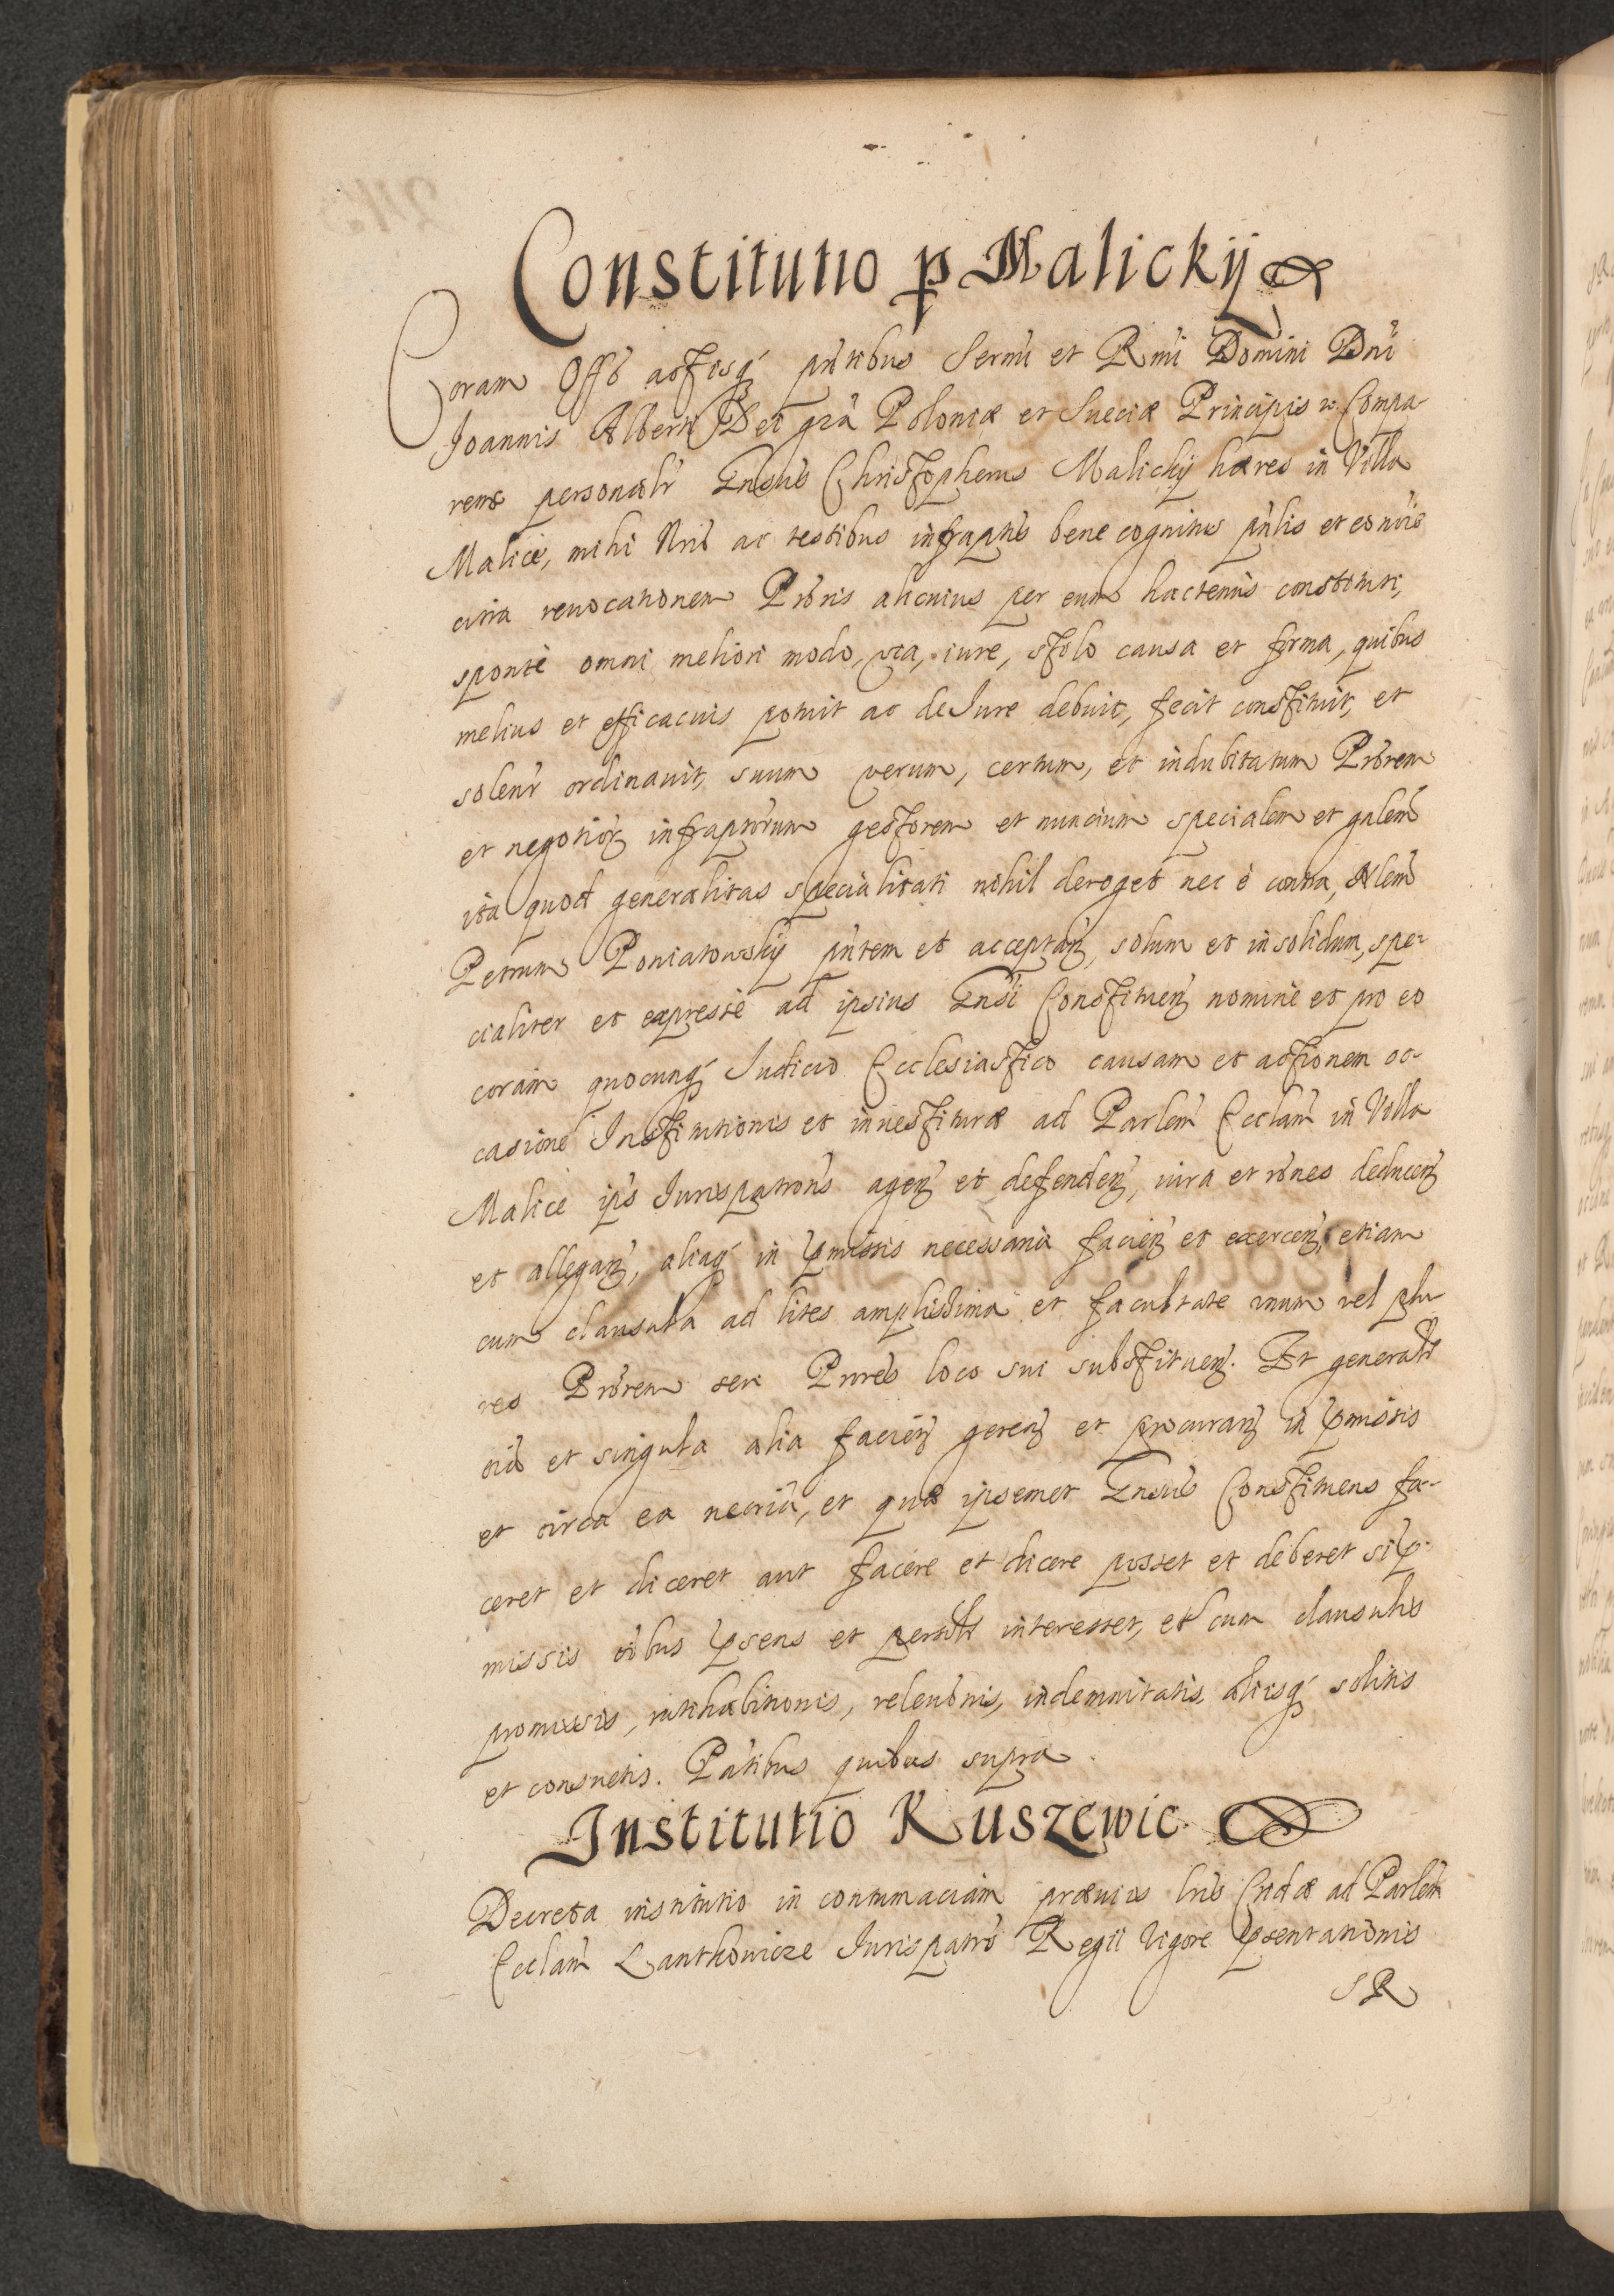 Constitutio p Malickij
Coram Offo actisq pntibus Sermi et Rmi Domini Dni
Joannis Alberti Dei gra Poloniæ et Sueciæ Principis Compa-
rens personalr Gnsus Christopherus Malickij hæres in Villa
Malice, mihi Nrio ac testibus infraptis bene cognitus pnlis et
citra reuocationem Proris alicuius per eum hactenus constituti,
sponte omni meliori modo, via, iure, stylo causa et forma, quibus
melius et efficacius potuit ac de Iure debuit, fecit constituit, et
solenr ordinauit, suum verum, certum, et indubitatum Prorem
et negotior infraptorum gestorem et nuncium specialem et gnlem
ita quod generalitas specialitati nihil deroget nec è contra, Nlem
Petrum Poniatowskij pntem et acceptan, solum et insolidum, spe-
cialiter et expresse ad ipsius Gnsi Constituen nomine et pro eo
coram quocunq Iudicio Ecclesiastico causam et actionem oc-
casione Institutionis et inuestituræ ad Parlem Ecclam in Villa
Malice ips Iurispatrons agen et defenden, iura et rones deducen
et allegan, aliaq in pmissis necessaria facien et exercen, etiam
cum clausula ad lites amplissima et facultate unum vel plu-
res Prorem seu Prores loco sui substituen. Et generalr
oia et singula alia facien geren et procuran in pmissis
et circa ea necria, et quæ ipsemet Gnsus Constituens fa-
ceret et diceret aut facere et dicere posset et deberet si p-
missis oibus psens et persolr interesset, et cum clausulis
promissis, ratihabitionis, releuonis, indemnitatis, alijsq solitis
et consuetis. Pntibus quibus supra.
Institutio Ruszewic.
Decreta institutio in contumaciam præuijs lris Cridæ ad Parlem
Ecclam Lanthowicze Iurispatro Regij Vigore psentationis
SR